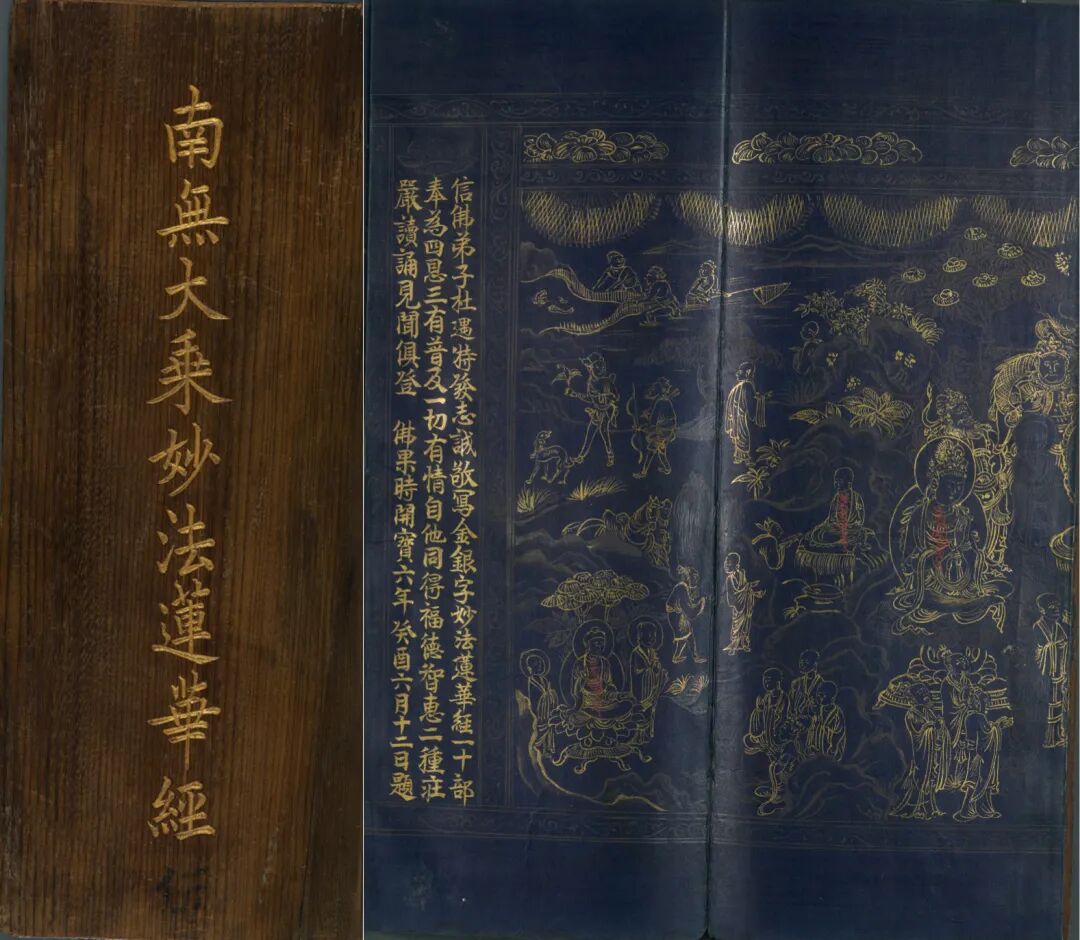 南無大乘妙法蓮華經
信佛弟子杜遇特發志誠敬寫金銀字妙法蓮華經一十部
奉為四恩三有普及一切有情自他同得福德智惠二種莊
嚴讀誦見聞俱登 佛果時開寶六年癸酉六月十二日題